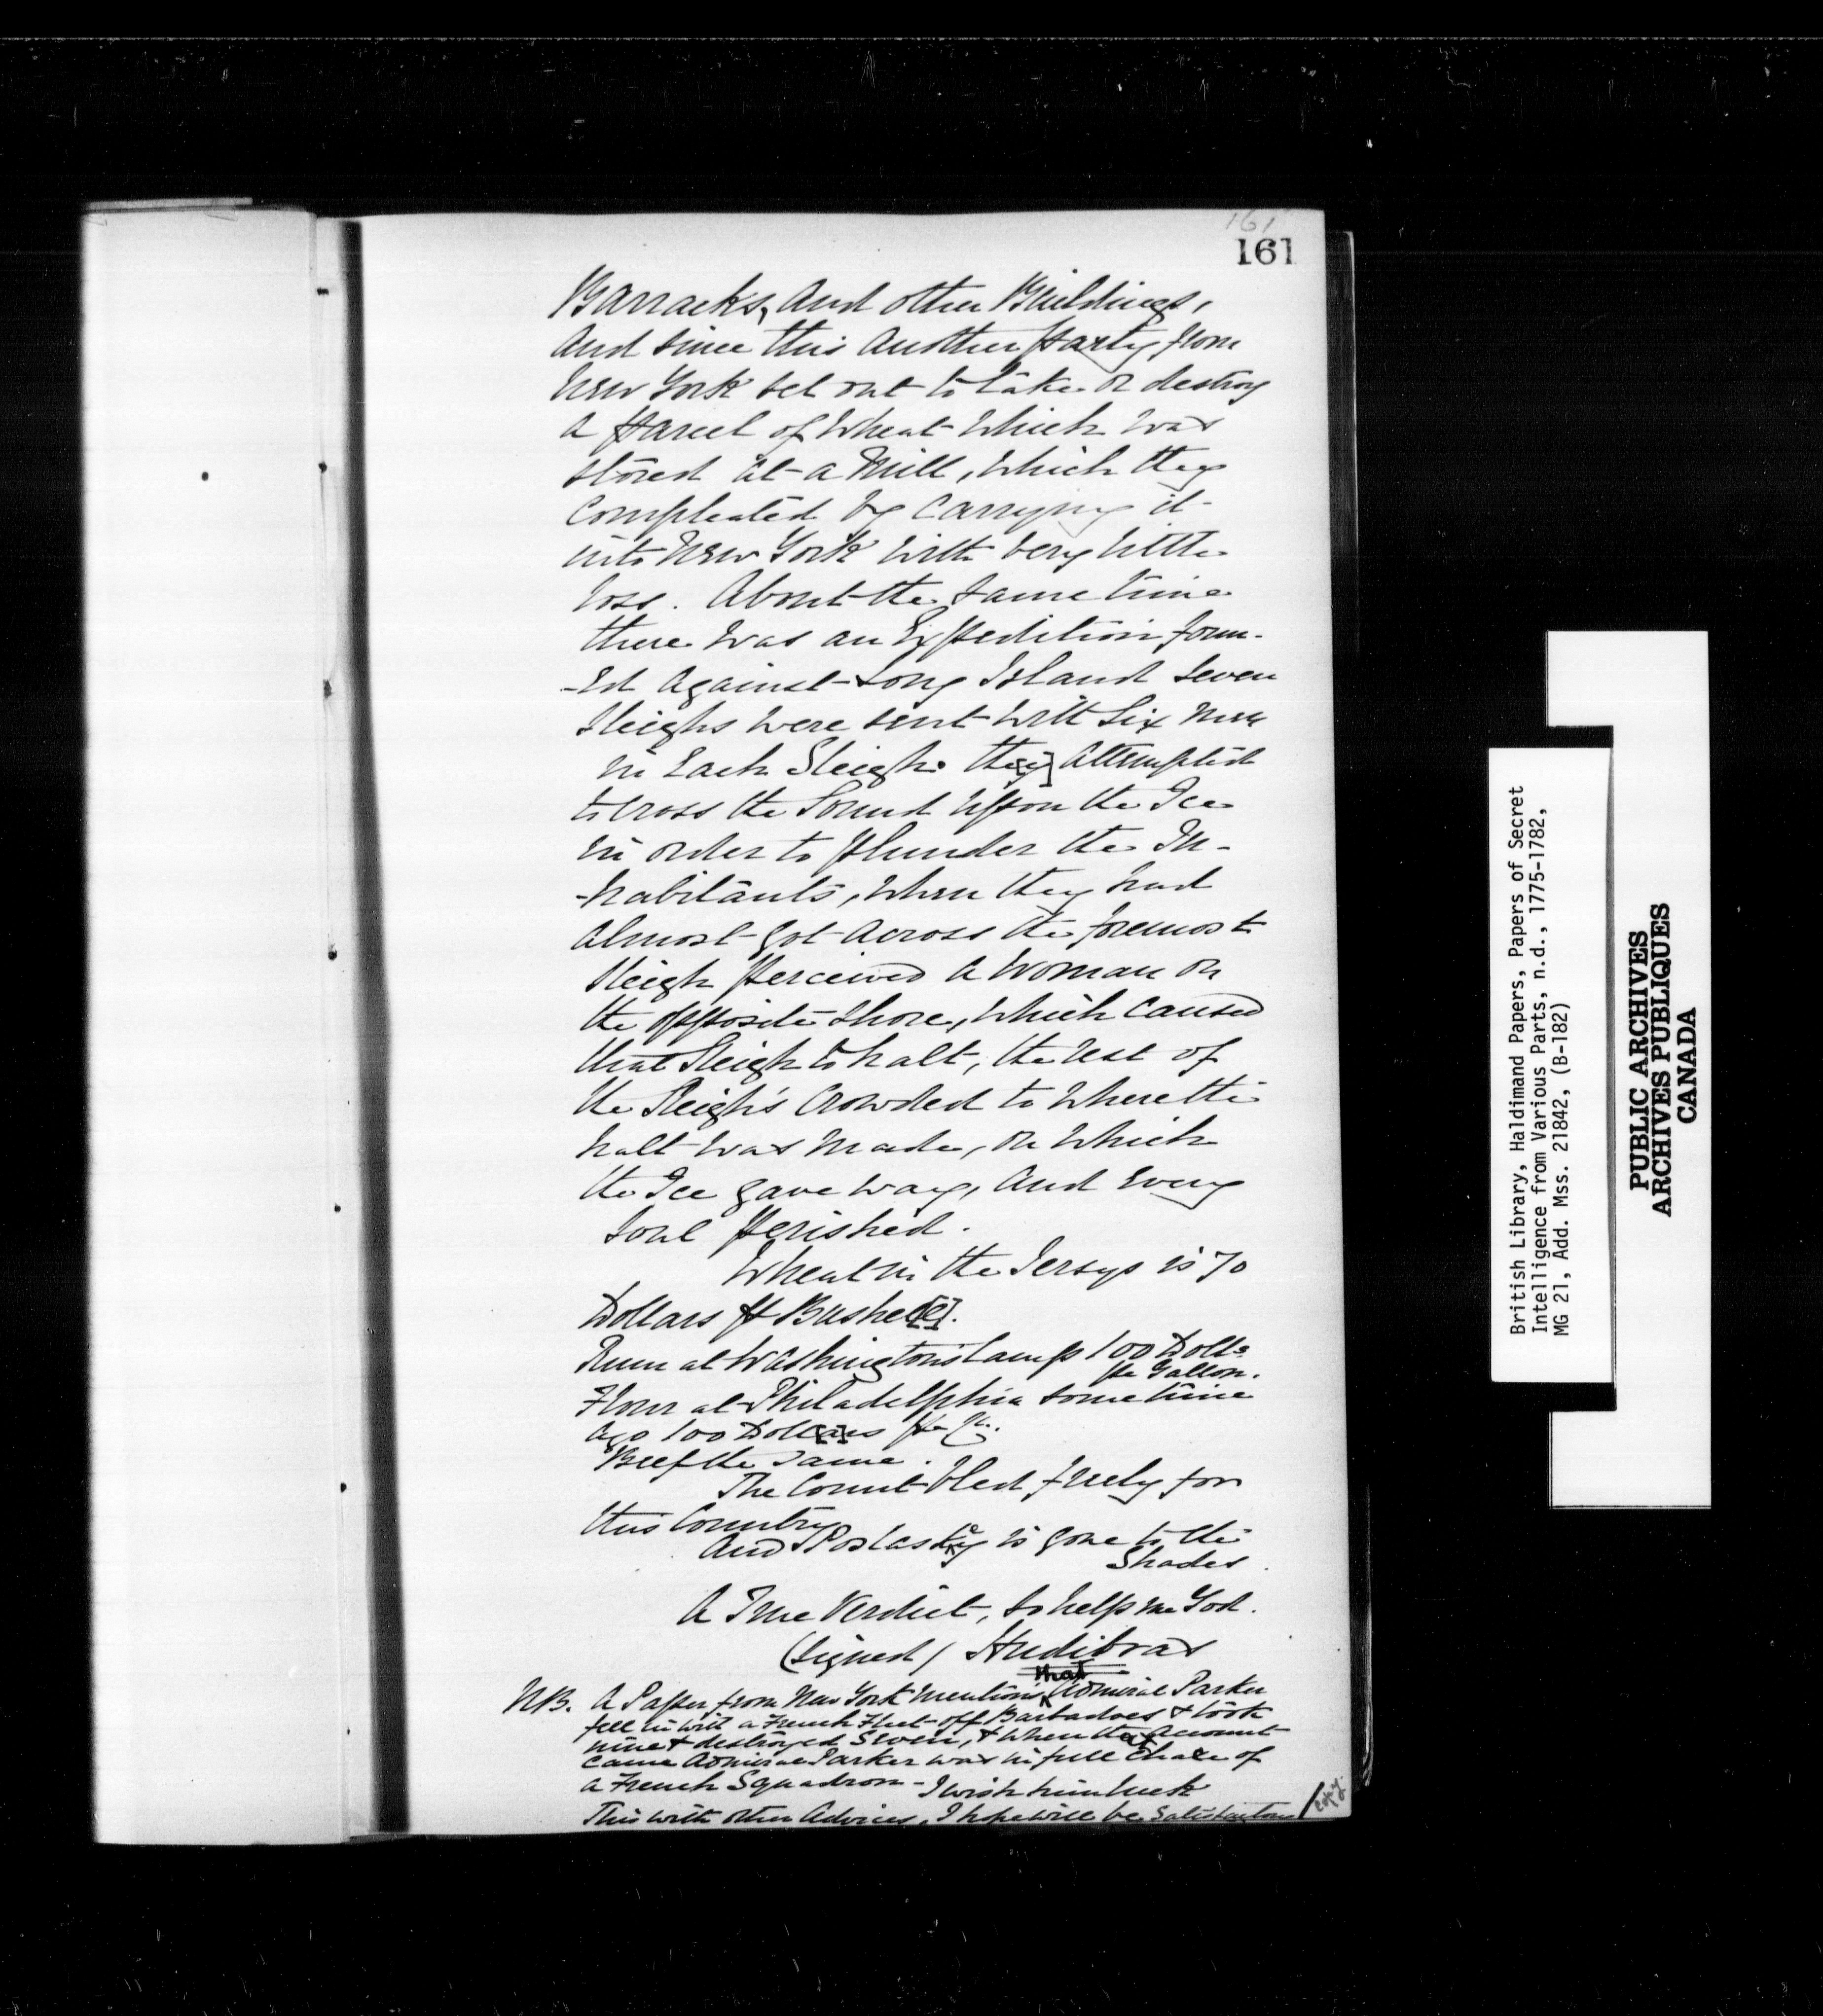 161
161
Barracks, and other Buildings,
And since this Another Party from
New York set out to take or destroy
a Parcel of Wheat which was
stored at a Mill, which they
Compleated by Carrying it
into New York with very little
loss. About the same time
there was an Expedition form-
-ed Against Long Island seven
Sleighs were sent with Six Men
in Each Sleigh. they attempted
to cross the Sound upon the Ice
in order to plunder the In-
-habitants, when they had
almost got across the foremost
Sleigh perceived a Woman on
the opposite Shore, which caused
that Sleigh to halt, the rest of
the Sleigh's Crowded to where the
halt was made, on which
the Ice gave way, and every
Soul perished.
Wheat in the Jerseys is 70
Dollars p Bushe[l].
Rum at Washington's Camp 100 Dolls
per Gallon.
Flour at Philadelphia sometime
ago 100 Doll[a]rs per Ct.
Beef the Same.
The Count bled freely for
this Country
And is gone to the
Shades.
A True Verdict, So help me God.
(signed) Hudibras
that
NB. A Paper from New York mentions Admiral Parker
fell in with a French Fleet off Barbadoes & took
nine & destroyed Seven, & when the Account
came Admiral Parker was in full Chace of
a French Squadron - I wish him luck
This with other Advices, I hope will be Satisfactory
Copy.
British Library, Haldimand Papers, Papers of Secret
Intelligence from Various Parts, n.d., 1775-1782,
MG 21, Add. Mss. 21842, (B-182)
PUBLIC ARCHIVES
ARCHIVES PUBLIQUES
CANADA